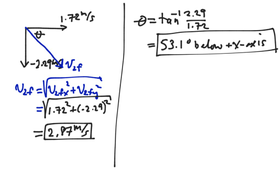 1.72 m/s
θ
-2.29 m/s
v₂f
v₂f = √(v₂fx² + v₂fy²)
= √(1.72² + (-2.29)²)
= 2.87 m/s
θ = tan⁻¹ 2.29/1.72
= 53.1° below +x-axis